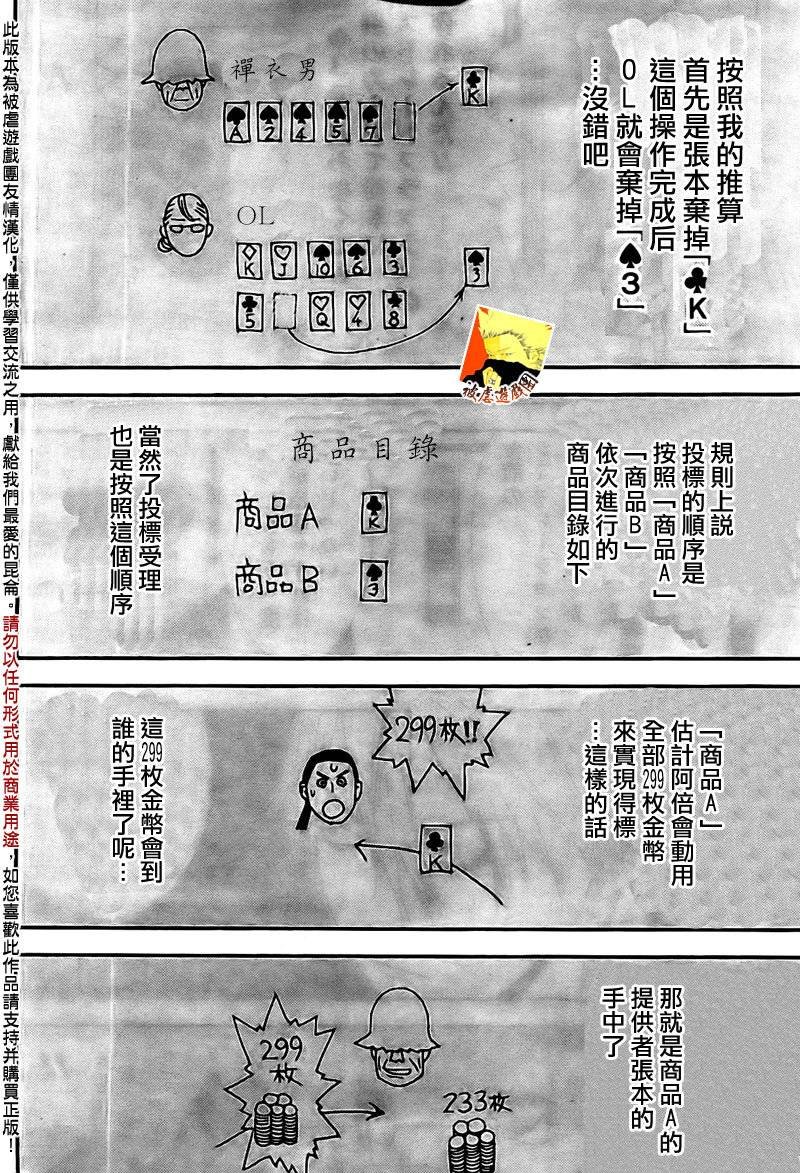 按照我的推算
首先是張本棄掉「♣K」
這個操作完成后
OL就會棄掉「♠3」
…沒錯吧
禪衣男
K
A 2 4 5 7
OL
K J 10 6 3
5 Q 4 8
3
被虐遊戲團
規則上說
投標的順序是
按照「商品A」
「商品B」
依次進行的
商品目錄如下
商品目錄
商品A K
商品B 3
當然了投標受理
也是按照這個順序
「商品A」
估計阿倍會動用
全部299枚金幣
來實現得標
…這樣的話
299枚!!
K
這299枚金幣會到
誰的手裡了呢…
那就是商品A的
提供者張本的
手中了
299枚
233枚
此版本為被虐遊戲團友情漢化，僅供學習交流之用，獻給我們最愛的昆侖。請勿以任何形式用於商業用途，如您喜歡此作品請支持并購買正版！